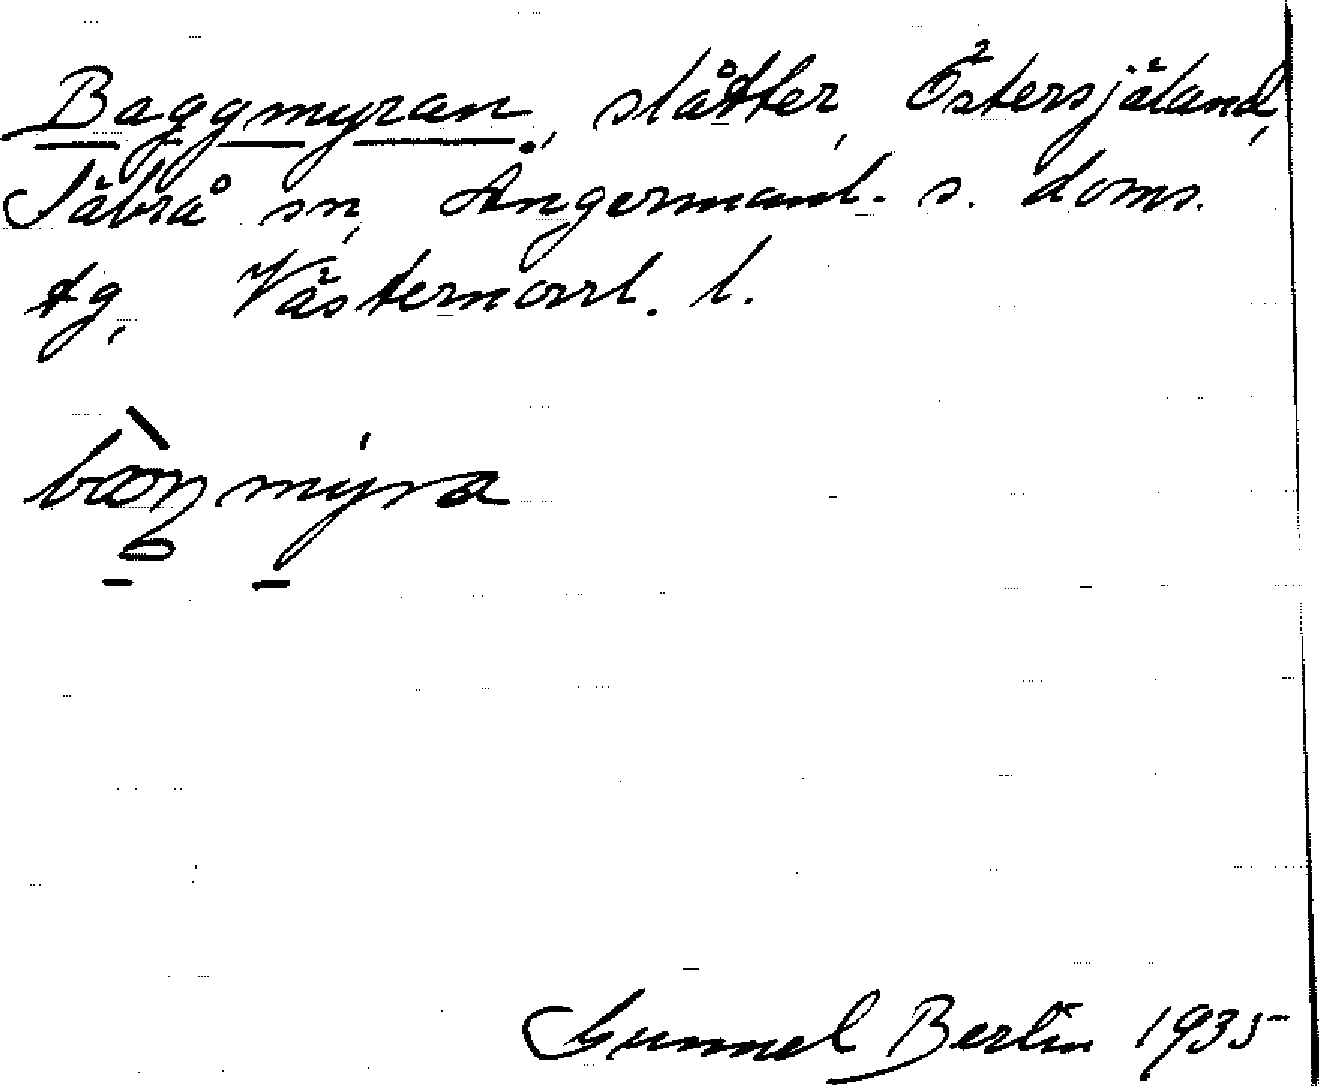 Baggmyran, slåtter, Östersjäland,
Säbrå sn, Ångermanl. s. doms.
tg, Västernorrl. l.
Gunnel Berlin 1935